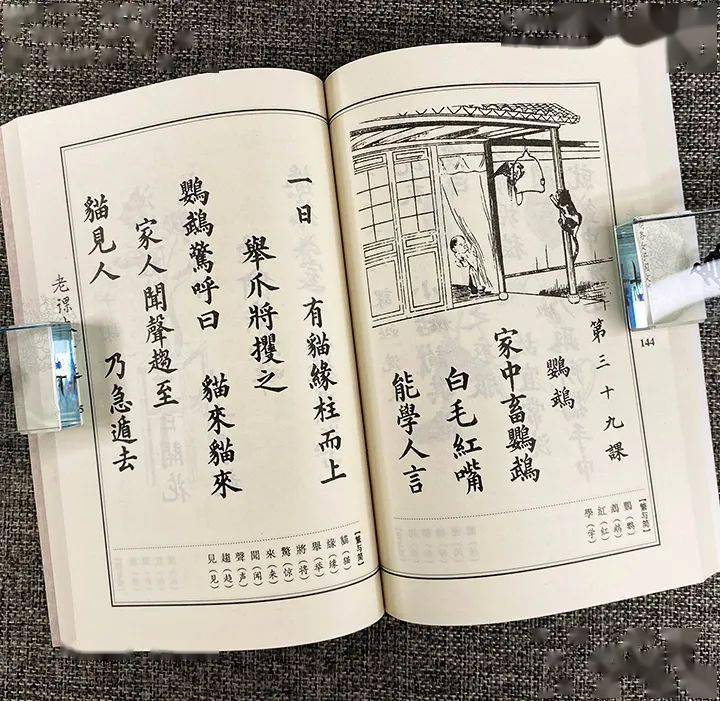 第三十九課
鸚鵡
家中畜鸚鵡
白毛紅嘴
能學人言
【繁与简】
鸚(鹦)
鵡(鹉)
紅(红)
學(学)
144
一日 有貓緣柱而上
舉爪將攫之
鸚鵡驚呼曰 貓來貓來
家人聞聲趨至
貓見人 乃急遁去
【繁与简】
貓(猫)
緣(缘)
舉(举)
將(将)
驚(惊)
來(来)
聞(闻)
聲(声)
趨(趋)
見(见)
老課